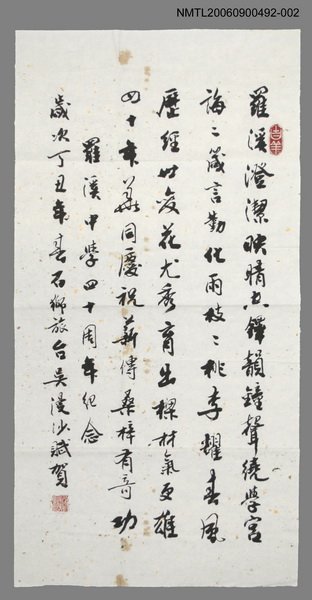 NMTL20060900492-002
羅溪澄潔映晴空鐸韻鐘聲繞學宮
誨誨箴言勤化雨枝枝桃李耀春風
歷經世變花尤秀育出棟材氣更雄
四十年華同慶祝薪傳桑梓有奇功
羅溪中學四十周年紀念
歲次丁丑年春石獅旅台吳漫沙誠賀
吉羊